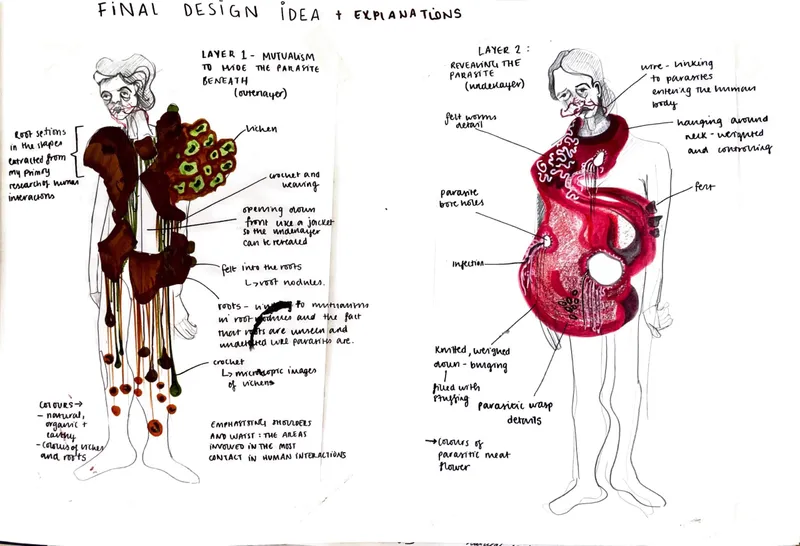 FINAL DESIGN IDEA + EXPLANATIONS
LAYER 1 - MUTUALISM
TO HIDE THE PARASITE
BENEATH
(outerlayer)
Root sections
in the shapes
extracted from
my primary
research of human
interactions
lichen
crochet and
weaving
opening down
front like a jacket
so the underlayer
can be revealed
felt into the roots
↳ root nodules.
roots - linking to mutualism
in root nodules and the fact
that roots are unseen and
undetected like parasites are.
crochet
↳ microscopic images
of lichens
COLOURS →
- natural,
organic +
earthy
- colours of lichen
and roots
EMPHASISING SHOULDERS
AND WAIST: THE AREAS
INVOLVED IN THE MOST
CONTACT IN HUMAN INTERACTIONS
LAYER 2:
REVEALING THE
PARASITE
(underlayer)
wire - linking
to parasites
entering the human
body
felt worms
detail
hanging around
neck - weighted
and controlling
parasite
bore holes
felt
infection
Knitted, weighed
down - bulging
filled with
stuffing
parasitic wasp
details
→ colours of
parasitic meat
flower